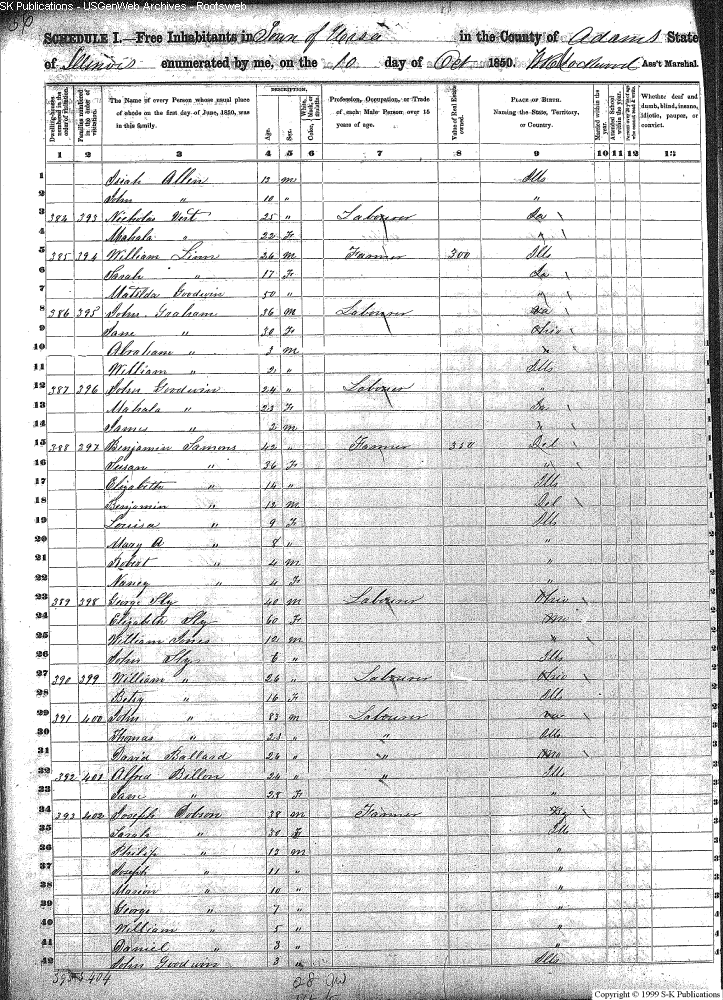 SK Publications - USGenWeb Archives - Rootsweb
SCHEDULE I.—Free Inhabitants in Town of Ursa in the County of Adams State
of Illinois enumerated by me, on the 10 day of Oct 1850. Ass't Marshal.
Dwelling-houses numbered in the order of visitation.
Families numbered in the order of visitation.
The Name of every Person whose usual place of abode on the first day of June, 1850, was in this family.
DESCRIPTION.
Age.
Sex.
White, black, or mulatto.
Color,
Profession, Occupation, or Trade of each Male Person over 15 years of age.
Value of Real Estate owned.
PLACE OF BIRTH. Naming the State, Territory, or Country.
Married within the year.
Attended School within the year.
Whether deaf and dumb, blind, insane, idiotic, pauper, or convict.
1 2 3 4 5 6 7 8 9 10 11 12 13
1 Isiah Allen 12 m Ills
2 John " 10 " "
3 384 393 Nicholas Vert 25 " Labourer
4 Mahala " 22 F "
5 385 394 William Linn 26 m Farmer 300 Ills
6 Sarah " 17 F
7 Matilda Goodwin 50 " "
8 386 395 John Graham 36 m Labourer
9 Jane " 30 F Ohio
10 Abraham " 3 m
11 William " 2 " Ills
12 387 396 John Goodwin 24 " Labourer "
13 Mahala " 23 F
14 James " 2 m
15 388 297 Benjamin Samons 42 " Farmer 350 Del
16 Susan " 36 F "
17 Elizabeth " 14 " Ills
18 Benjamin " 12 m Del
19 Louisa " 9 F Ills
20 Mary A " 8 " "
21 Robert " 4 m "
22 Nancy " 4 F "
23 389 398 George Sly 40 m Labourer Ohio
24 Elizabeth Sly 60 F
25 William Jones 12 m
26 John Sly 6 " Ills
27 390 399 William " 26 " Labourer Ohio
28 Betsy " 16 F Ills
29 391 400 John " 83 m Labourer
30 Thomas " 23 " " Ills
31 David Ballard 26 " "
32 392 401 Alfred Billon 24 " Ills
33 Jane " 28 F "
34 393 402 Joseph Dobson 38 m Farmer Ky
35 Sarah " 30 F Ills
36 Philip " 13 m "
37 Joseph " 11 " "
38 Marion " 10 " "
39 George " 7 " "
40 William " 5 " "
41 Daniel " 3 " "
42 John Goodwin 3 " Ills
Copyright © 1999 S-K Publications